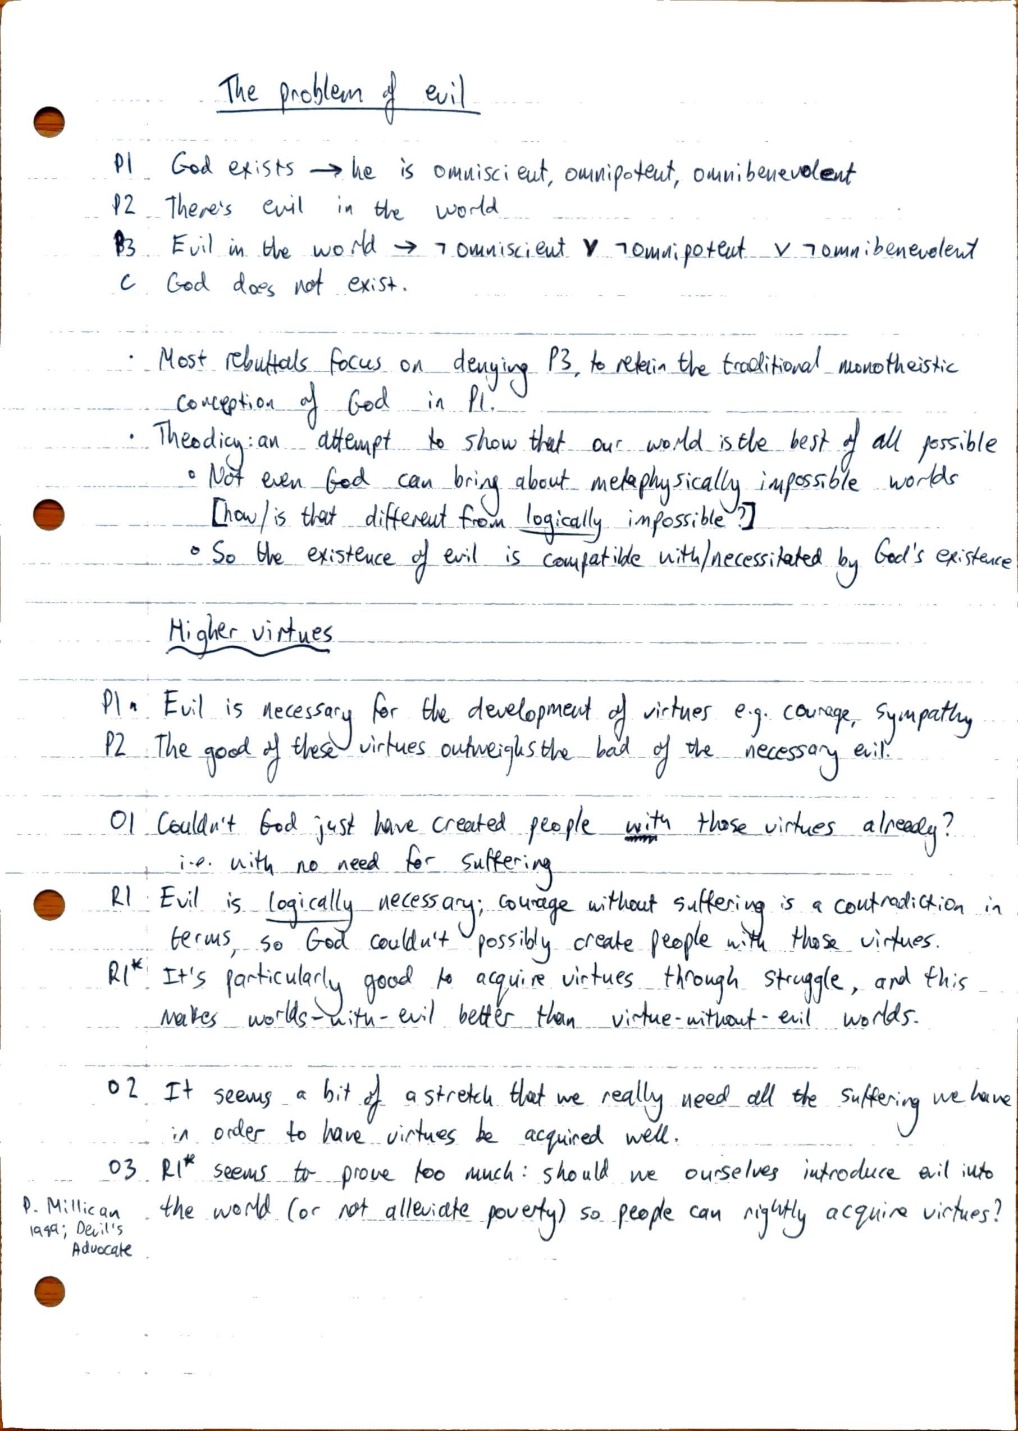 The problem of evil
P1 God exists → he is omniscient, omnipotent, omnibenevolent
P2 There's evil in the world
P3 Evil in the world → ¬omniscient ∨ ¬omnipotent ∨ ¬omnibenevolent
C God does not exist.
· Most rebuttals focus on denying P3, to retain the traditional monotheistic
conception of God in P1.
· Theodicy: an attempt to show that our world is the best of all possible
∘ Not even God can bring about metaphysically impossible worlds
[how/is that different from logically impossible?]
∘ So the existence of evil is compatible with/necessitated by God's existence
Higher virtues
P1 Evil is necessary for the development of virtues e.g. courage, sympathy
P2 The good of these virtues outweighs the bad of the necessary evil.
O1 Couldn't God just have created people with those virtues already?
i.e. with no need for suffering
R1 Evil is logically necessary; courage without suffering is a contradiction in
terms, so God couldn't possibly create people with those virtues.
R1* It's particularly good to acquire virtues through struggle, and this
makes worlds-with-evil better than virtue-without-evil worlds.
O2 It seems a bit of a stretch that we really need all the suffering we have
in order to have virtues be acquired well.
O3 R1* seems to prove too much: should we ourselves introduce evil into
the world (or not alleviate poverty) so people can rightly acquire virtues?
P. Millican
1989; Devil's
Advocate